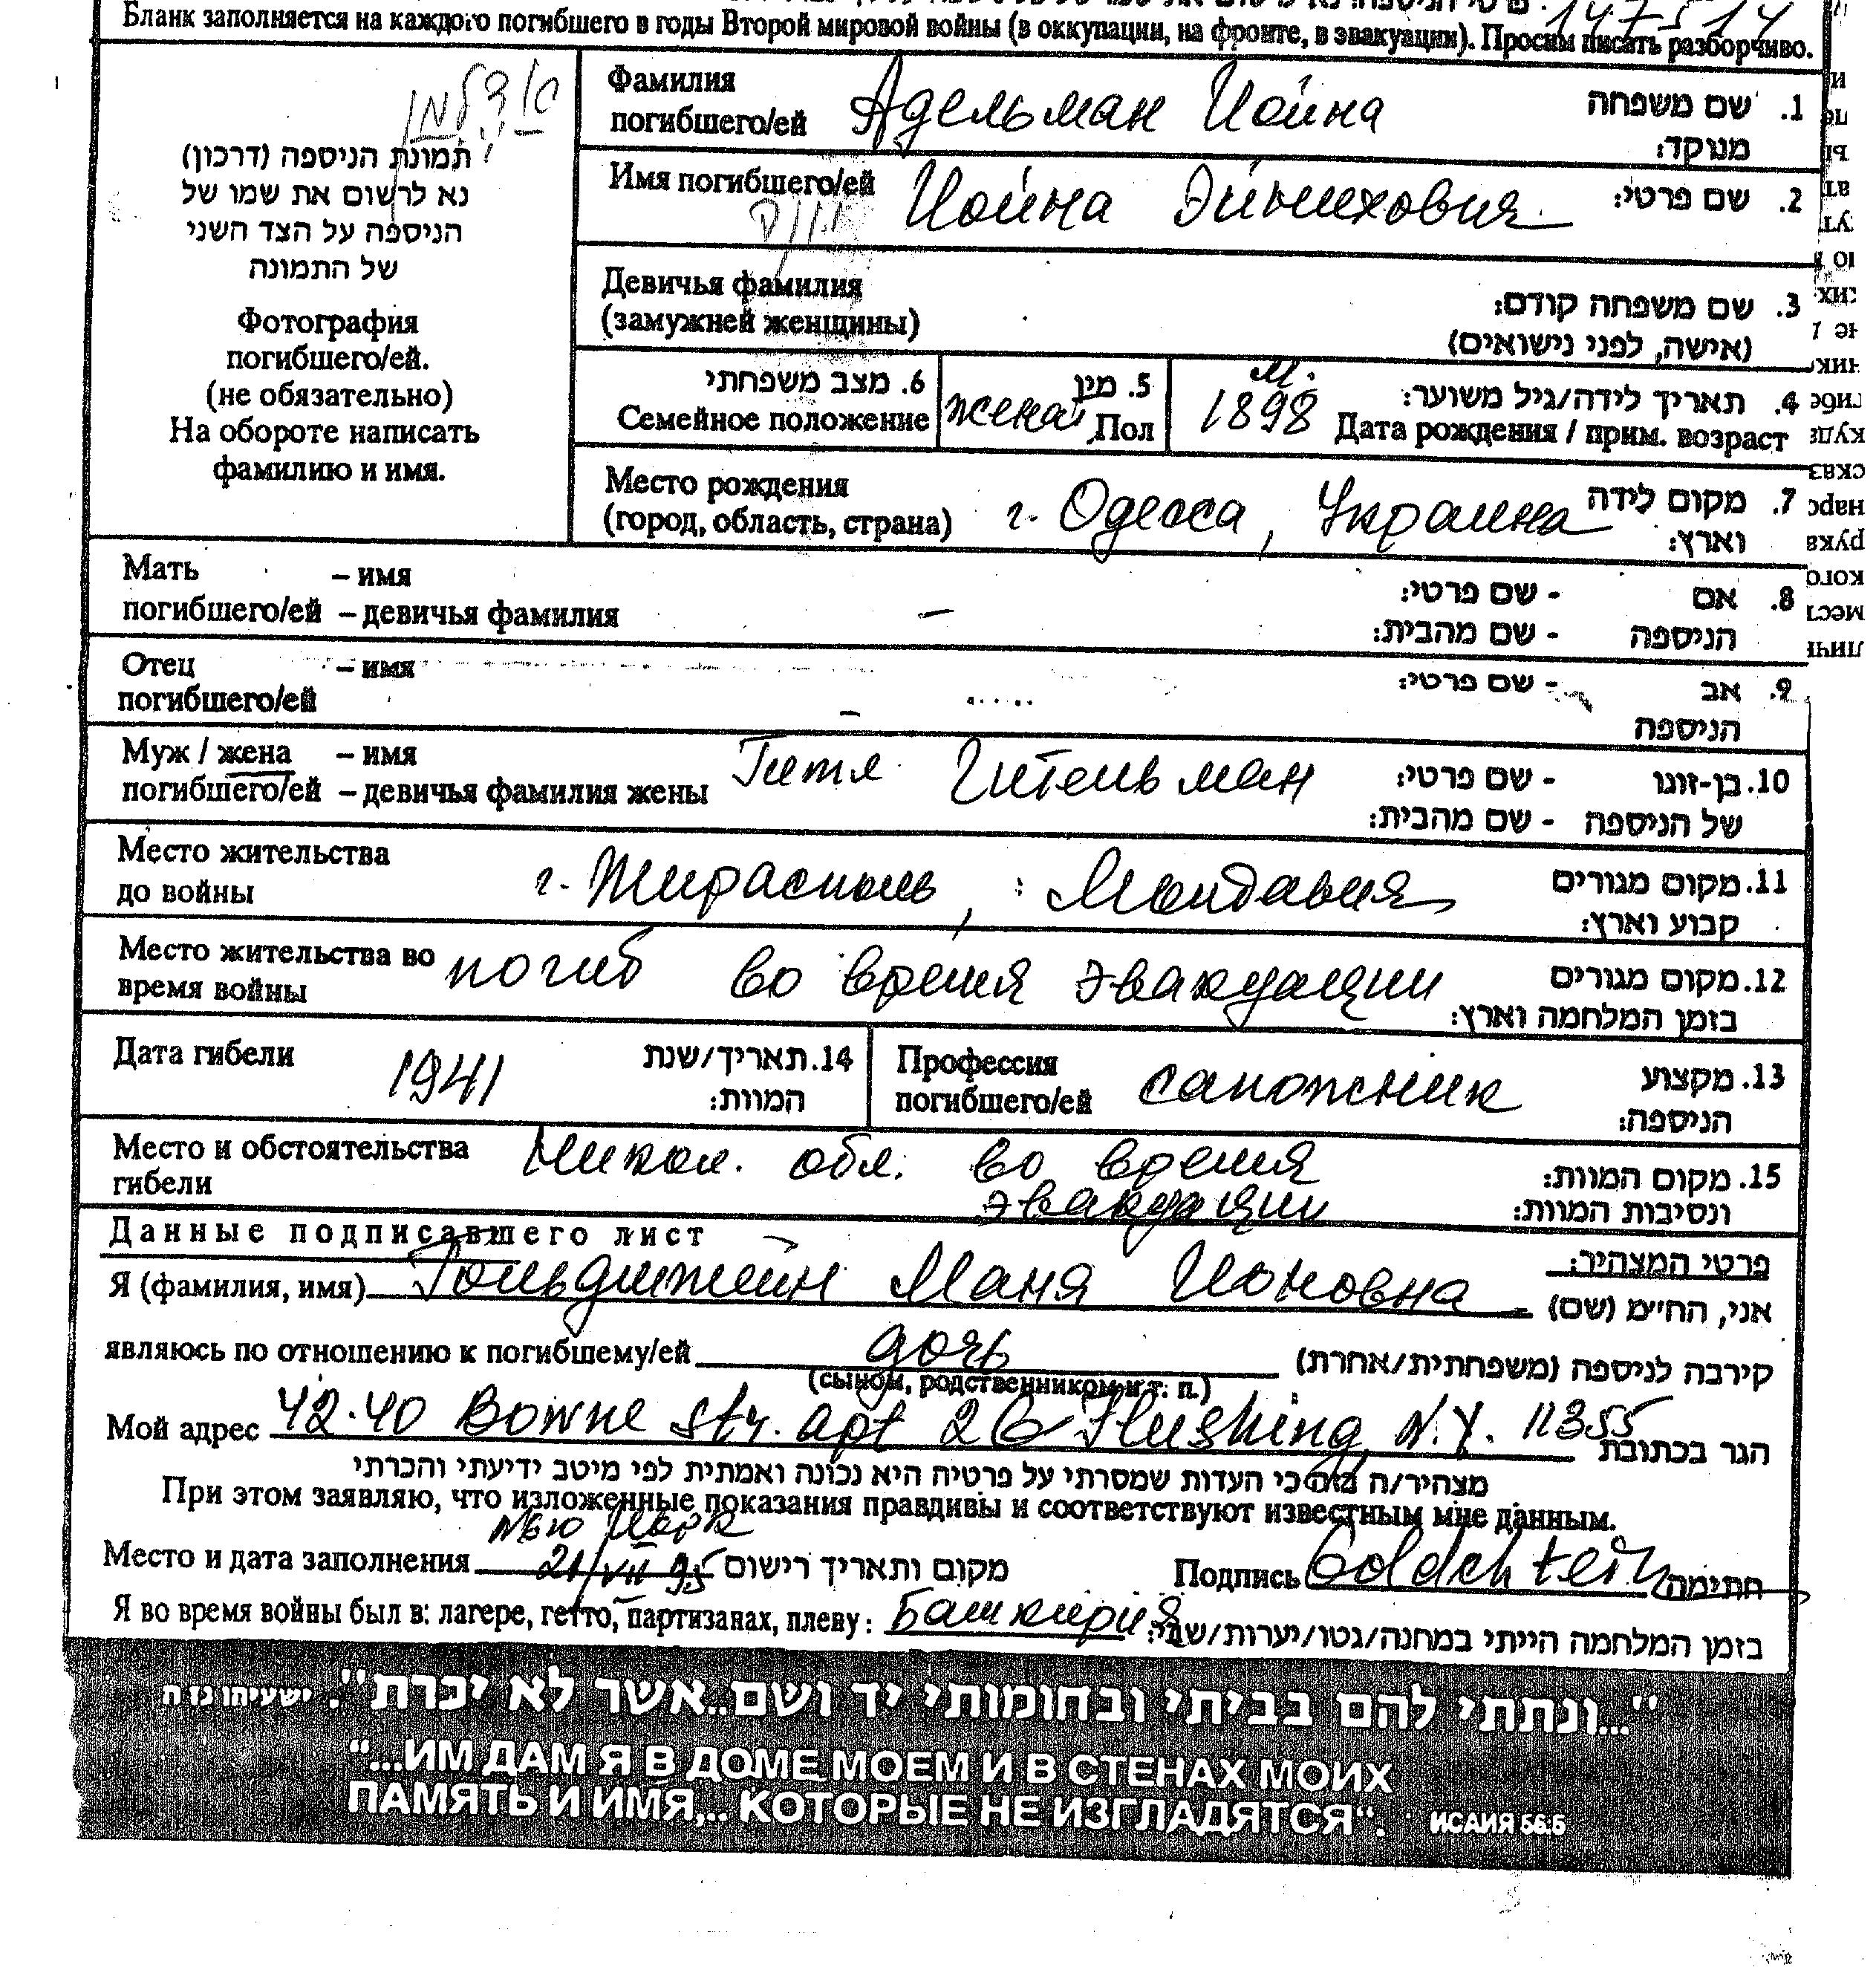 Бланк заполняется на каждого погибшего в годы Второй мировой войны (в оккупации, на фронте, в эвакуации). Просим писать разборчиво.
אדלמן
תמונת הניספה (דרכון)
נא לרשום את שמו של
הניספה על הצד השני
של התמונה
Фотография
погибшего/ей.
(не обязательно)
На обороте написать
фамилию и имя.
Фамилия שם משפחה .1
погибшего/ей Адельман Иойна מנוקד:
Имя погибшего/ей Иойна Эйнихович שם פרטי: .2
Девичья фамилия שם משפחה קודם: .3
(замужней женщины) (אישה, לפני נישואים)
6. מצב משפחתי 5. מין м. 4. תאריך לידה/גיל משוער:
Семейное положение женат Пол 1898 Дата рождения / прим. возраст
Место рождения 7. מקום לידה
(город, область, страна) г. Одесса, Украина וארץ:
Мать – имя 8. אם - שם פרטי:
погибшего/ей – девичья фамилия – הניספה - שם מהבית:
Отец – имя 9. אב - שם פרטי:
погибшего/ей – הניספה
Муж / жена – имя Гитл Гительман 10. בן-זוגו - שם פרטי:
погибшего/ей – девичья фамилия жены של הניספה - שם מהבית:
Место жительства 11. מקום מגורים
до войны г. Тирасполь, Молдавия קבוע וארץ:
Место жительства во погиб во время эвакуации 12. מקום מגורים
время войны בזמן המלחמה וארץ:
Дата гибели 1941 14. תאריך/שנת המוות:
Профессия сапожник 13. מקצוע
погибшего/ей הניספה:
Место и обстоятельства Никол. обл. во время 15. מקום המוות:
гибели эвакуации ונסיבות המוות:
Данные подписавшего лист פרטי המצהיר:
Я (фамилия, имя) Гольдштейн Маня Ионовна אני, החי״מ (שם)
являюсь по отношению к погибшему/ей дочь קירבה לניספה (משפחתית/אחרת)
(сыном, родственником и т. п.)
Мой адрес 42-40 Bowne str. apt 2G Flushing, N.Y. 11355 הגר בכתובת
מצהיר/ה בזה כי העדות שמסרתי על פרטיה היא נכונה ואמתית לפי מיטב ידיעתי והכרתי
При этом заявляю, что изложенные показания правдивы и соответствуют известным мне данным.
Нью Йорк
Место и дата заполнения 21/VII 95 מקום ותאריך רישום Подпись Goldchtein חתימה
Я во время войны был в: лагере, гетто, партизанах, плену: Башкирия בזמן המלחמה הייתי במחנה/גטו/יערות/שבי:
"...ונתתי להם בביתי ובחומותי יד ושם...אשר לא יכרת". ישעיהו נו ה
“...ИМ ДАМ Я В ДОМЕ МОЕМ И В СТЕНАХ МОИХ
ПАМЯТЬ И ИМЯ,.. КОТОРЫЕ НЕ ИЗГЛАДЯТСЯ“. ИСАИЯ 56:5